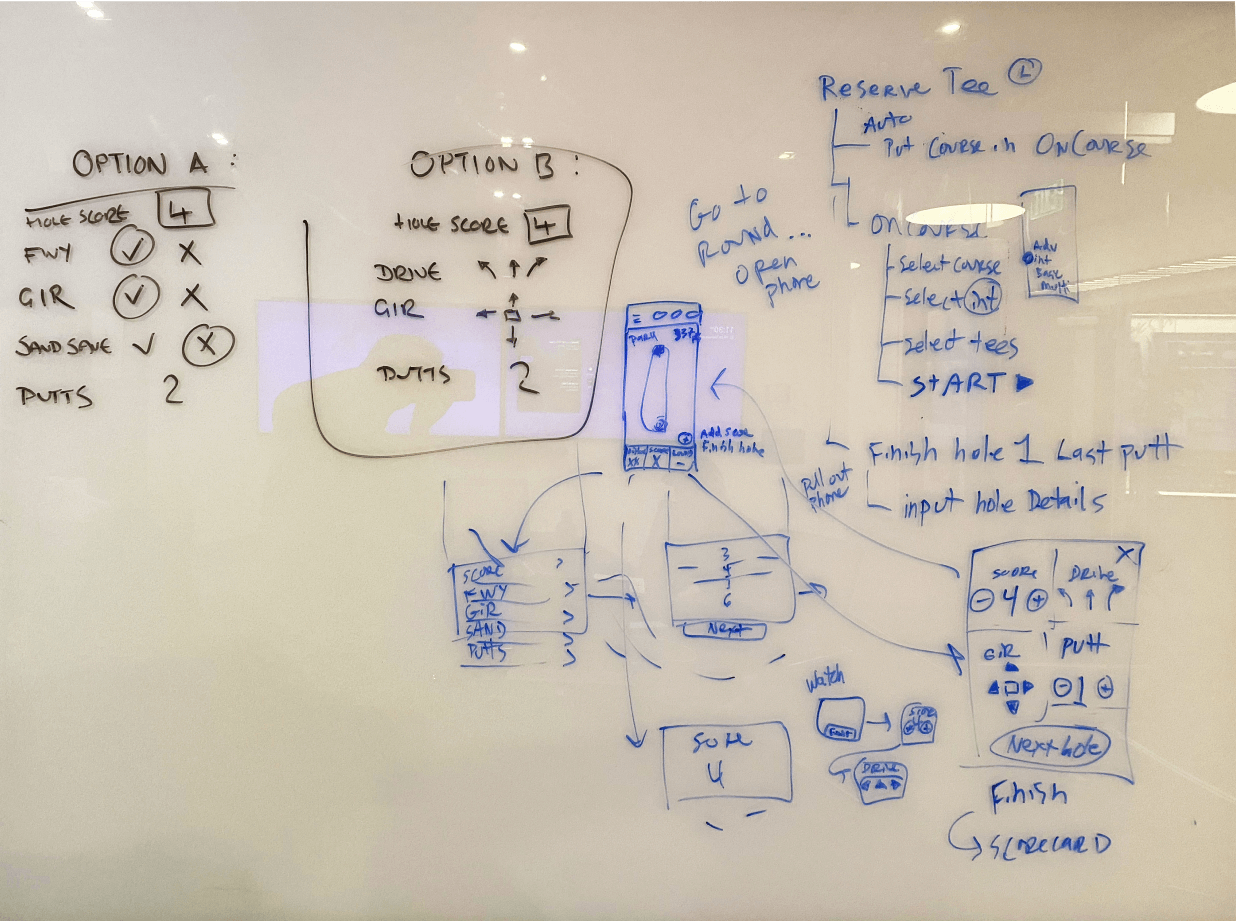 OPTION A :
HOLE SCORE 4
FWY ✓ X
GIR ✓ X
SAND SAVE ✓ X
PUTTS 2
OPTION B :
HOLE SCORE 4
DRIVE ↖ ↑ ↗
GIR
PUTTS 2
Go to
Round ...
open
phone
Reserve Tee
Auto
Put Course in OnCourse
OnCourse
Select Course
Select int
Select tees
START ▶
Adv
int
Basic
Multi
Finish hole 1 Last putt
input hole Details
Par 4
Add Score
Finish hole
Pull out
phone
SCORE >
FWY >
GiR >
SAND >
PUTTS >
3
4
5
6
Next
Score
4
Watch
Finish
Score
4
DRIVE
X
Score
- 4 +
Drive
GiR
Putt
- 1 +
Next hole
Finish
SCORECARD